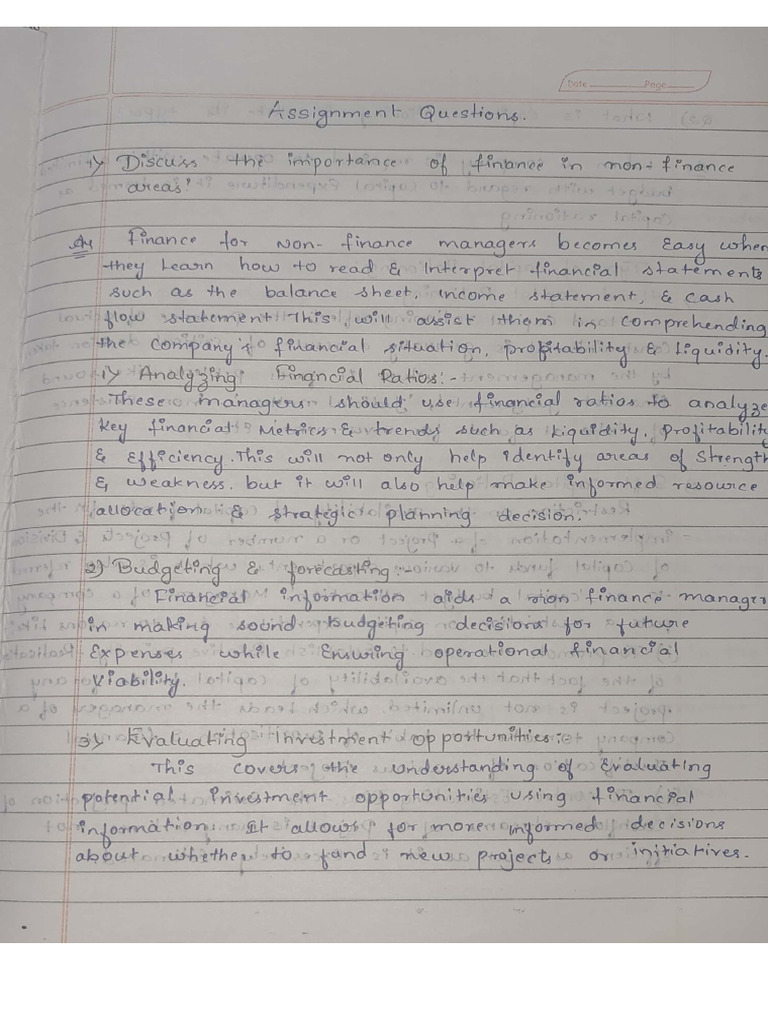 Date Page
Assignment Questions.
1) Discuss the importance of finance in non-finance
areas?
Ans Finance for Non-finance managers becomes Easy when
they Learn how to read & Interpret financial statements
such as the balance sheet, income statement, & cash
flow statement This will assist them in comprehending
the company's financial situation, profitability & Liquidity.
1) Analyzing Financial Ratios:-
These managers should use financial ratios to analyze
Key financial Metrics & trends such as Liquidity, Profitability
& Efficiency. This will not only help identify areas of Strength
& weakness. but it will also help make informed resource
allocation & strategic planning decision.
2) Budgeting & forecasting:-
Financial information aids a non finance manager
in making sound Budgeting decisions for future
Expenses while Ensuring operational financial
viability.
3) Evaluating Investment opportunities:
This covers the understanding of Evaluating
potential investment opportunities using financial
information. It allows for more informed decisions
about whether to fund new projects or initiatives.